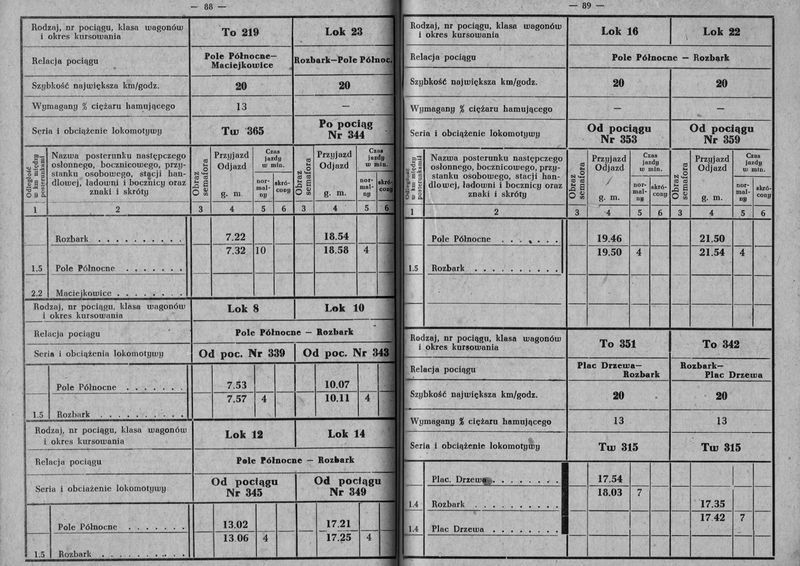 — 88 —
Rodzaj, nr pociągu, klasa wagonów
i okres kursowania
To 219
Lok 23
Relacja pociągu
Pole Północne—
Maciejkowice
Rozbark—Pole Północ.
Szybkość największa km/godz.
20
20
Wymagany % ciężaru hamującego
13
—
Seria i obciążenie lokomotywy
Tw 365
Po pociąg
Nr 344
Odległość
w km między
posterunkami
Nazwa posterunku następczego
osłonnego, bocznicowego, przy-
stanku osobowego, stacji han-
dlowej, ładowni i bocznicy oraz
znaki i skróty
Obraz
semafora
Przyjazd
Odjazd
g. m.
Czas
jazdy
w min.
nor-
mal-
ny
skró-
cony
Obraz
semafora
Przyjazd
Odjazd
g. m.
Czas
jazdy
w min.
nor-
mal-
ny
skró-
cony
1 2 3 4 5 6 3 4 5 6
Rozbark . . . . . . . . . .
7.22
18.54
7.32 10
18.58 4
1.5 Pole Północne . . . . . . .
2.2 Maciejkowice . . . . . . . .
Rodzaj, nr pociągu, klasa wagonów
i okres kursowania
Lok 8
Lok 10
Relacja pociągu
Pole Północne — Rozbark
Seria i obciążenia lokomotywy
Od poc. Nr 339
Od poc. Nr 343
Pole Północne . . . . . . .
7.53
10.07
7.57 4
10.11 4
1.5 Rozbark . . . . . . . . . .
Rodzaj, nr pociągu, klasa wagonów
i okres kursowania
Lok 12
Lok 14
Relacja pociągu
Pole Północne — Rozbark
Seria i obciażenie lokomotywy
Od pociągu
Nr 345
Od pociągu
Nr 349
Pole Północne . . . . . . .
13.02
17.21
13 06 4
17.25 4
1.5 Rozbark . . . . . . . . . .
— 89 —
Rodzaj, nr pociągu, klasa wagonów
i okres kursowania
Lok 16
Lok 22
Relacja pociągu
Pole Północne — Rozbark
Szybkość największa km/godz.
20
20
Wymagany % ciężaru hamującego
—
—
Seria i obciążenie lokomotywy
Od pociągu
Nr 353
Od pociągu
Nr 359
Odległość
w km między
posterunkami
Nazwa posterunku następczego
osłonnego, bocznicowego, przy-
stanku osobowego, stacji han-
dlowej, ładowni i bocznicy oraz
znaki i skróty
Obraz
semafora
Przyjazd
Odjazd
g. m.
Czas
jazdy
w min.
nor-
mal-
ny
skró-
cony
Obraz
semafora
Przyjazd
Odjazd
g. m.
Czas
jazdy
w min.
nor-
mal-
ny
skró-
cony
1 2 3 4 5 6 3 4 5 6
Pole Północne . . . . . . .
19.46
21.50
19.50 4
21.54 4
1.5 Rozbark . . . . . . . . . .
Rodzaj, nr pociągu, klasa wagonów
i okres kursowania
To 351
To 342
Relacja pociągu
Plac Drzewa—
Rozbark
Rozbark—
Plac Drzewa
Szybkość największa km/godz.
20
20
Wymagany % ciężaru hamującego
13
13
Seria i obciążenie lokomotywy
Tw 315
Tw 315
Plac. Drzewa . . . . . . . .
17.54
18.03 7
1.4 Rozbark . . . . . . . . . .
17.35
17 42 7
1.4 Plac Drzewa . . . . . . . .